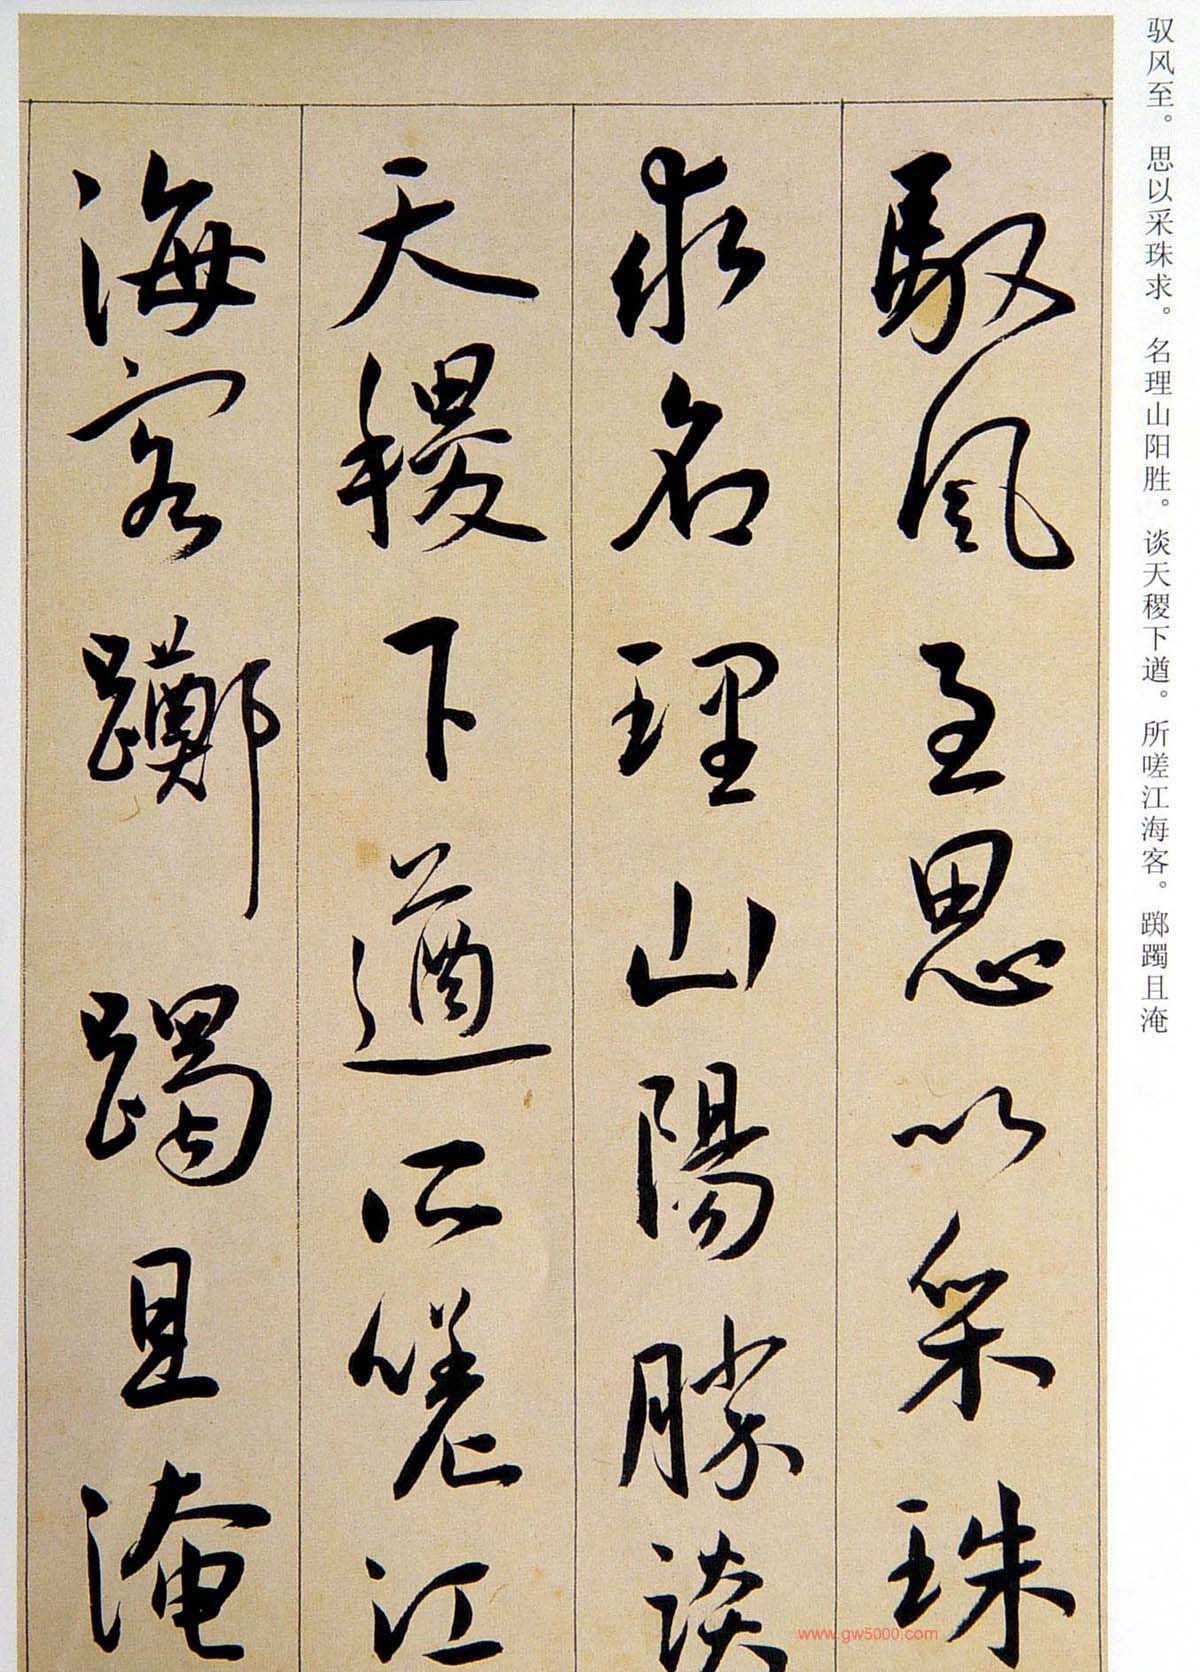 驭风至。思以采珠求。名理山阳胜。谈天稷下遒。所嗟江海客。踯躅且淹
馭風至思以采珠
求名理山陽勝談
天稷下遒所嗟江
海客躑躅且淹
www.gw5000.com